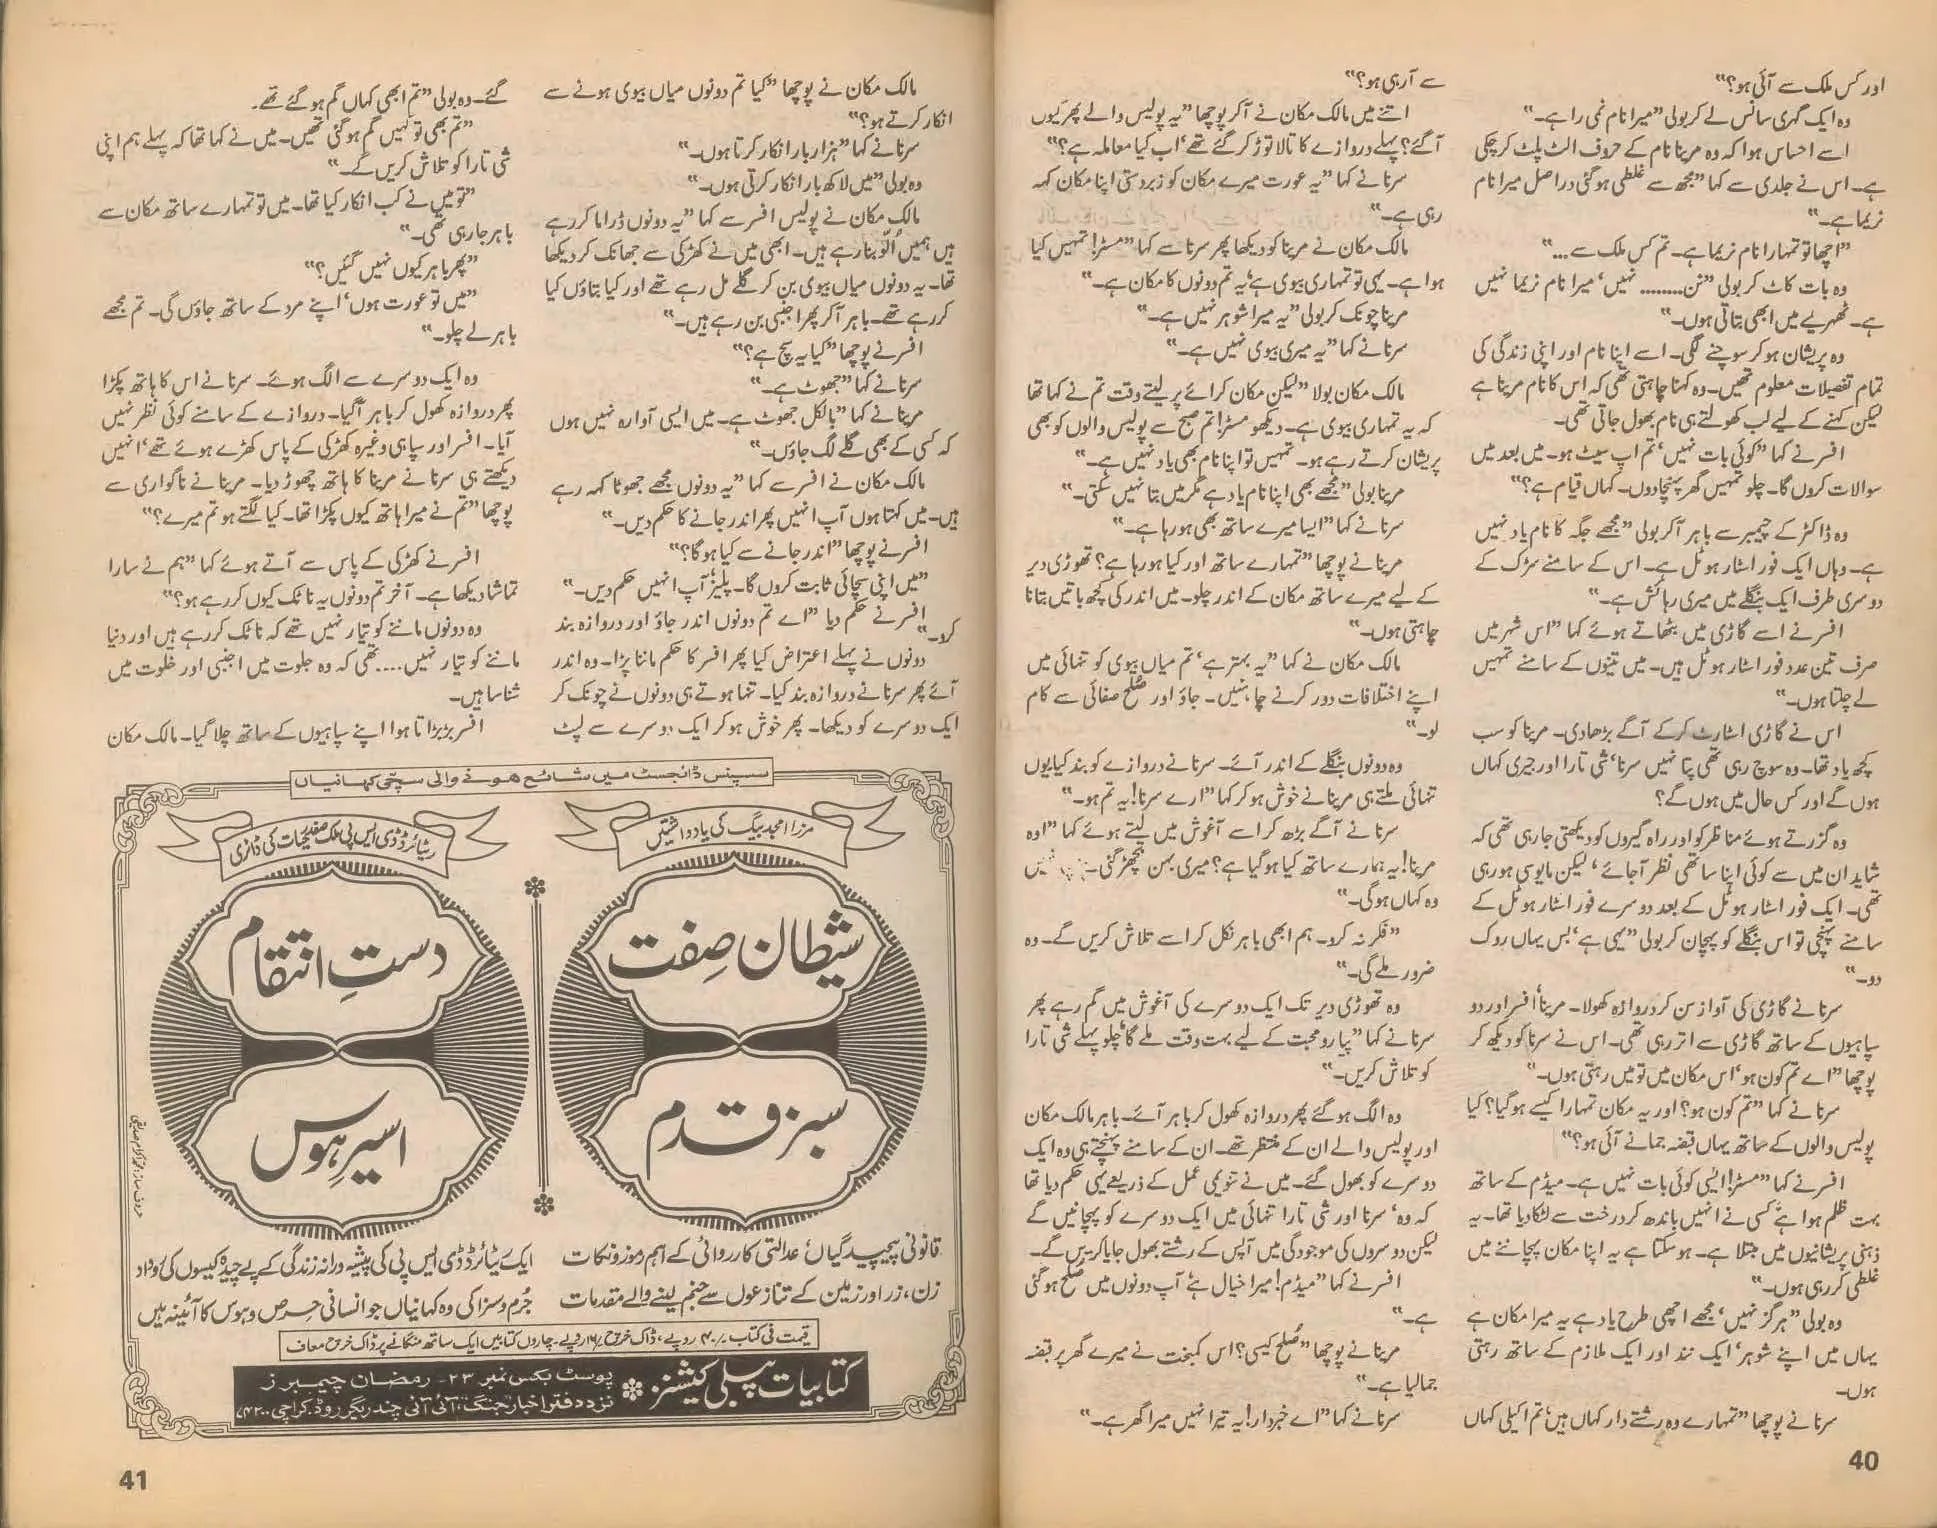 اور کس ملک سے آئی ہو؟“
وہ ایک گہری سانس لے کر بولی ”میرا نام نمی را ہے۔“
اسے احساس ہوا کہ وہ مرینا نام کے حروف الٹ پلٹ کر چکی
ہے۔ اس نے جلدی سے کہا ”مجھ سے غلطی ہو گئی دراصل میرا نام
نریما ہے۔“
”اچھا تو تمہارا نام نریما ہے۔ تم کس ملک سے...“
وہ بات کاٹ کر بولی ”نن........ نہیں‘ میرا نام نریما نہیں
ہے۔ ٹھہریے میں ابھی بتاتی ہوں۔“
وہ پریشان ہو کر سوچنے لگی۔ اسے اپنا نام اور اپنی زندگی کی
تمام تفصیلات معلوم تھیں۔ وہ کہنا چاہتی تھی کہ اس کا نام مرینا ہے
لیکن کہنے کے لیے لب کھولتے ہی نام بھول جاتی تھی۔
افسر نے کہا ”کوئی بات نہیں‘ تم اپ سیٹ ہو۔ میں بعد میں
سوالات کروں گا۔ چلو تمہیں گھر پہنچا دوں۔ کہاں قیام ہے؟“
وہ ڈاکٹر کے چیمبر سے باہر آ کر بولی ”مجھے جگہ کا نام یاد نہیں
ہے۔ وہاں ایک فور اسٹار ہوٹل ہے۔ اس کے سامنے سڑک کے
دوسری طرف ایک بنگلے میں میری رہائش ہے۔“
افسر نے اسے گاڑی میں بٹھاتے ہوئے کہا ”اس شہر میں
صرف تین عدد فور اسٹار ہوٹل ہیں۔ میں تینوں کے سامنے تمہیں
لے چلتا ہوں۔“
اس نے گاڑی اسٹارٹ کر کے آگے بڑھا دی۔ مرینا کو سب
کچھ یاد تھا۔ وہ سوچ رہی تھی پتا نہیں سرنا‘ شی تارا اور جیری کہاں
ہوں گے اور کس حال میں ہوں گے؟
وہ گزرتے ہوئے مناظر کو اور راہ گیروں کو دیکھتی جا رہی تھی کہ
شاید ان میں سے کوئی اپنا ساتھی نظر آ جائے‘ لیکن مایوسی ہو رہی
تھی۔ ایک فور اسٹار ہوٹل کے بعد دوسرے فور اسٹار ہوٹل کے
سامنے پہنچی تو اس بنگلے کو پہچان کر بولی ”یہی ہے‘ بس یہاں روک
دو۔“
سرنا نے گاڑی کی آواز سن کر دروازہ کھولا۔ مرینا افسر اور دو
سپاہیوں کے ساتھ گاڑی سے اتر رہی تھی۔ اس نے سرنا کو دیکھ کر
پوچھا ”اے تم کون ہو‘ اس مکان میں تو میں رہتی ہوں۔“
سرنا نے کہا ”تم کون ہو؟ اور یہ مکان تمہارا کیسے ہو گیا؟ کیا
پولیس والوں کے ساتھ یہاں قبضہ جمانے آئی ہو؟“
افسر نے کہا ”مسٹر! ایسی کوئی بات نہیں ہے۔ میڈم کے ساتھ
بہت ظلم ہوا ہے‘ کسی نے انہیں باندھ کر درخت سے لٹکا دیا تھا۔ یہ
ذہنی پریشانیوں میں مبتلا ہے۔ ہو سکتا ہے یہ اپنا مکان پہچاننے میں
غلطی کر رہی ہوں۔“
وہ بولی ”ہرگز نہیں‘ مجھے اچھی طرح یاد ہے یہ میرا مکان ہے
یہاں میں اپنے شوہر‘ ایک نند اور ایک ملازم کے ساتھ رہتی
ہوں۔
سرنا نے پوچھا ”تمہارے وہ رشتے دار کہاں ہیں‘ تم اکیلی کہاں
سے آ رہی ہو؟“
اتنے میں مالک مکان نے آ کر پوچھا ”یہ پولیس والے پھر کیوں
آ گئے؟ پہلے دروازے کا تالا توڑ کر گئے تھے‘ اب کیا معاملہ ہے؟“
سرنا نے کہا ”یہ عورت میرے مکان کو زبردستی اپنا مکان کہہ
رہی ہے۔“
مالک مکان نے مرینا کو دیکھا پھر سرنا سے کہا ”مسٹر! تمہیں کیا
ہوا ہے۔ یہی تو تمہاری بیوی ہے‘ یہ تم دونوں کا مکان ہے۔“
مرینا چونک کر بولی ”یہ میرا شوہر نہیں ہے۔“
سرنا نے کہا ”یہ میری بیوی نہیں ہے۔“
مالک مکان بولا ”لیکن مکان کرائے پر لیتے وقت تم نے کہا تھا
کہ یہ تمہاری بیوی ہے۔ دیکھو مسٹر! تم صبح سے پولیس والوں کو بھی
پریشان کرتے رہے ہو۔ تمہیں تو اپنا نام بھی یاد نہیں ہے۔“
مرینا بولی ”مجھے بھی اپنا نام یاد ہے مگر میں بتا نہیں سکتی۔“
سرنا نے کہا ”ایسا میرے ساتھ بھی ہو رہا ہے۔“
مرینا نے پوچھا ”تمہارے ساتھ اور کیا ہو رہا ہے؟ تھوڑی دیر
کے لیے میرے ساتھ مکان کے اندر چلو۔ میں اندر کی کچھ باتیں بتانا
چاہتی ہوں۔“
مالک مکان نے کہا ”یہ بہتر ہے‘ تم میاں بیوی کو تنہائی میں
اپنے اختلافات دور کرنے چاہئیں۔ جاؤ اور صُلح صفائی سے کام
لو۔“
وہ دونوں بنگلے کے اندر آئے۔ سرنا نے دروازے کو بند کیا یوں
تنہائی ملتے ہی مرینا نے خوش ہو کر کہا ”ارے سرنا! یہ تم ہو۔“
سرنا نے آگے بڑھ کر اسے آغوش میں لیتے ہوئے کہا ”اوہ
مرینا! یہ ہمارے ساتھ کیا ہو گیا ہے؟ میری بہن بچھڑ گئی۔ نہیں
وہ کہاں ہو گی۔“
”فکر نہ کرو۔ ہم ابھی باہر نکل کر اسے تلاش کریں گے۔ وہ
ضرور ملے گی۔“
وہ تھوڑی دیر تک ایک دوسرے کی آغوش میں گم رہے پھر
سرنا نے کہا ”پیار و محبت کے لیے بہت وقت ملے گا‘ چلو پہلے شی تارا
کو تلاش کریں۔“
وہ الگ ہو گئے پھر دروازہ کھول کر باہر آئے۔ باہر مالک مکان
اور پولیس والے ان کے منتظر تھے۔ ان کے سامنے پہنچتے ہی وہ ایک
دوسرے کو بھول گئے۔ میں نے تنویمی عمل کے ذریعے یہی حکم دیا تھا
کہ وہ‘ سرنا اور شی تارا تنہائی میں ایک دوسرے کو پہچانیں گے
لیکن دوسروں کی موجودگی میں آپس کے رشتے بھول جایا کریں گے۔
افسر نے کہا ”میڈم! میرا خیال ہے‘ آپ دونوں میں صُلح ہو گئی
ہے۔“
مرینا نے پوچھا ”صُلح کیسی؟ اس کمبخت نے میرے گھر پر قبضہ
جما لیا ہے۔“
سرنا نے کہا ”اے خبردار! یہ تیرا نہیں میرا گھر ہے۔“
40
مالک مکان نے پوچھا ”کیا تم دونوں میاں بیوی ہونے سے
انکار کرتے ہو؟“
سرنا نے کہا ”ہزار بار انکار کرتا ہوں۔“
وہ بولی ”میں لاکھ بار انکار کرتی ہوں۔“
مالک مکان نے پولیس افسر سے کہا ”یہ دونوں ڈراما کر رہے
ہیں ہمیں اُلّو بنا رہے ہیں۔ ابھی میں نے کھڑکی سے جھانک کر دیکھا
تھا۔ یہ دونوں میاں بیوی بن کر گلے مل رہے تھے اور کیا بتاؤں کیا
کر رہے تھے۔ باہر آ کر پھر اجنبی بن رہے ہیں۔“
افسر نے پوچھا ”کیا یہ سچ ہے؟“
سرنا نے کہا ”جھوٹ ہے۔“
مرینا نے کہا ”بالکل جھوٹ ہے۔ میں ایسی آوارہ نہیں ہوں
کہ کسی کے بھی گلے لگ جاؤں۔“
مالک مکان نے افسر سے کہا ”یہ دونوں مجھے جھوٹا کہہ رہے
ہیں۔ میں کہتا ہوں آپ انہیں پھر اندر جانے کا حکم دیں۔“
افسر نے پوچھا ”اندر جانے سے کیا ہو گا؟“
”میں اپنی سچائی ثابت کروں گا۔ پلیز‘ آپ انہیں حکم دیں۔“
افسر نے حکم دیا ”اے تم دونوں اندر جاؤ اور دروازہ بند
کرو۔“
دونوں نے پہلے اعتراض کیا پھر افسر کا حکم ماننا پڑا۔ وہ اندر
آئے پھر سرنا نے دروازہ بند کیا۔ تنہا ہوتے ہی دونوں نے چونک کر
ایک دوسرے کو دیکھا۔ پھر خوش ہو کر ایک دوسرے سے لپٹ
گئے۔ وہ بولی ”تم ابھی کہاں گم ہو گئے تھے۔
”تم بھی تو کہیں گم ہو گئی تھیں۔ میں نے کہا تھا کہ پہلے ہم اپنی
شی تارا کو تلاش کریں گے۔“
”تو میں نے کب انکار کیا تھا۔ میں تو تمہارے ساتھ مکان سے
باہر جا رہی تھی۔“
”پھر باہر کیوں نہیں گئیں؟“
”میں تو عورت ہوں‘ اپنے مرد کے ساتھ جاؤں گی۔ تم مجھے
باہر لے چلو۔“
وہ ایک دوسرے سے الگ ہوئے۔ سرنا نے اس کا ہاتھ پکڑا
پھر دروازہ کھول کر باہر آ گیا۔ دروازے کے سامنے کوئی نظر نہیں
آیا۔ افسر اور سپاہی وغیرہ کھڑکی کے پاس کھڑے ہوئے تھے‘ انہیں
دیکھتے ہی سرنا نے مرینا کا ہاتھ چھوڑ دیا۔ مرینا نے ناگواری سے
پوچھا ”تم نے میرا ہاتھ کیوں پکڑا تھا۔ کیا لگتے ہو تم میرے؟“
افسر نے کھڑکی کے پاس سے آتے ہوئے کہا ”ہم نے سارا
تماشا دیکھا ہے۔ آخر تم دونوں یہ ناٹک کیوں کر رہے ہو؟“
وہ دونوں ماننے کو تیار نہیں تھے کہ ناٹک کر رہے ہیں اور دنیا
ماننے کو تیار نہیں.... تھی کہ وہ جلوت میں اجنبی اور خلوت میں
شناسا ہیں۔
افسر بڑبڑاتا ہوا اپنے سپاہیوں کے ساتھ چلا گیا۔ مالک مکان
سسپنس ڈائجسٹ میں شائع ہونے والی سچی کہانیاں
مرزا امجد بیگ کی یادداشتیں
شیطان صِفت
سبز قدم
قانونی پیچیدگیاں‘ عدالتی کارروائی کے اہم رموز و نکات
زن، زر اور زمین کے تنازعوں سے جنم لینے والے مقدمات
ریٹائرڈ ڈی ایس پی ملک صفدر حیات کی ڈائری
دستِ انتقام
اسیرِ ہوس
ایک ریٹائرڈ ڈی ایس پی کی پیشہ ورانہ زندگی کے پیچیدہ کیسوں کی رُوداد
جُرم و سزا کی وہ کہانیاں جو انسانی حرص و ہوس کا آئینہ ہیں
قیمت فی کتاب ۴۰/ روپے، ڈاک خرچ ۱۶/ روپے۔ چاروں کتابیں ایک ساتھ منگانے پر ڈاک خرچ معاف
کتابیات پبلی کیشنز
پوسٹ بکس نمبر ۲۳۔ رمضان چیمبرز
نزد دفتر اخبار جنگ، آئی آئی چندریگر روڈ، کراچی ۷۴۲۰۰
41